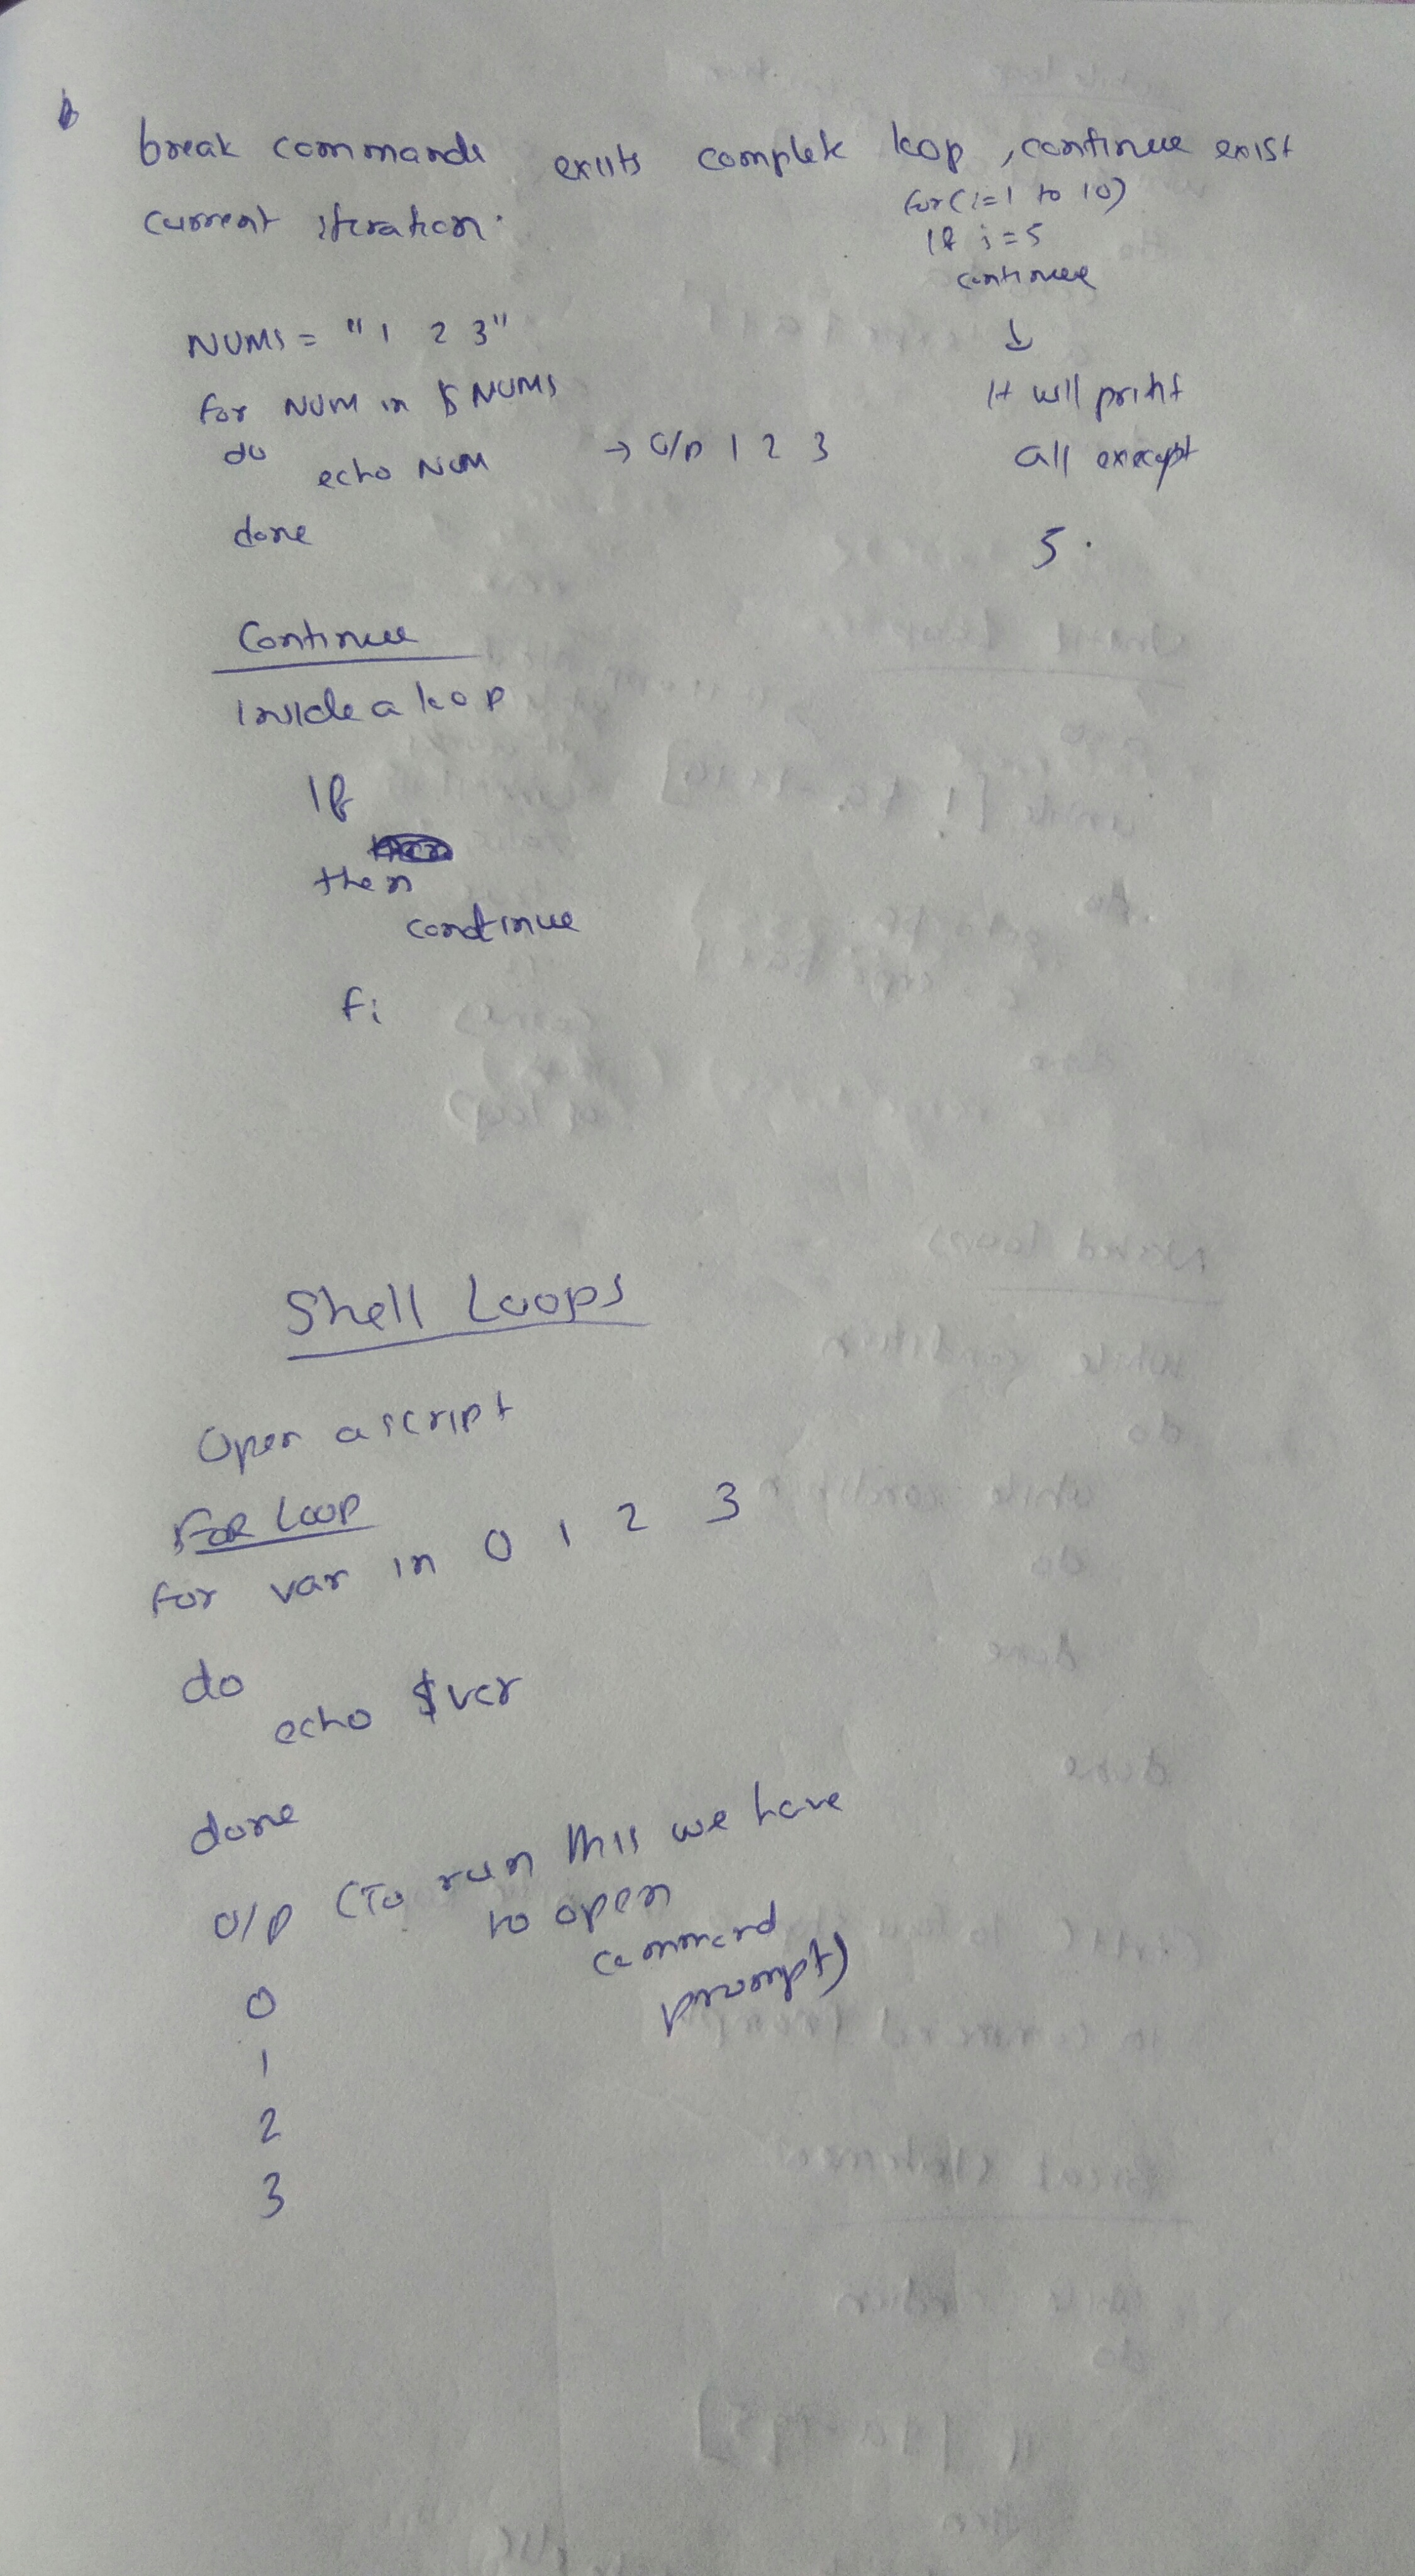 break commands exiits complete loop, continue exist
current iteration.
for(i=1 to 10)
If i=5
continue
↓
It will print
all execept
5.
NUMS = "1 2 3"
for NUM in $ NUMS
do
echo NUM → O/p 1 2 3
done
Continue
Inside a loop
If
then
continue
fi
Shell Loops
Open a script
FOR LOOP
for var in 0 1 2 3
do
echo $var
done
O/p (To run this we have
to open
command
prompt)
0
1
2
3